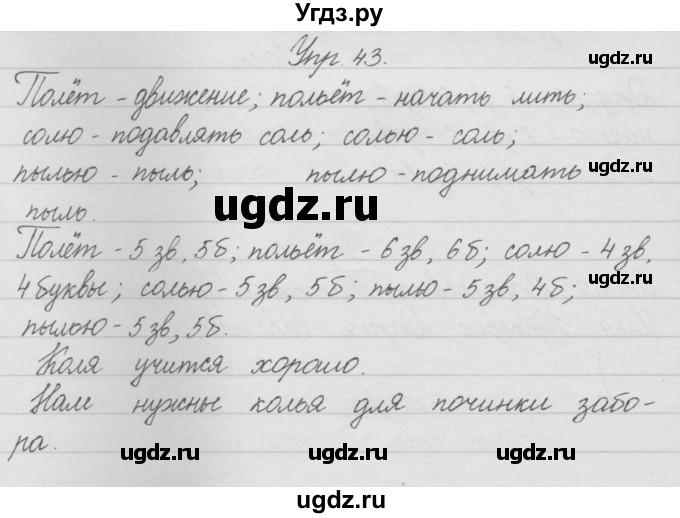 Угдз.ру
Упр. 43.
ugdz.ru
Полёт - движение; польёт - начать лить;
солю - подавлять соль; солью - соль;
пылью - пыль; пылю - поднимать
ugdz.ru
пыль.
ugdz.ru
Полёт - 5 зв, 5б; польёт - 6 зв, 6б; солю - 4 зв,
4 буквы; солью - 5 зв, 5б; пылю - 5 зв, 4б;
ugdz.ru
пылью - 5 зв, 5б.
Коля учится хорошо.
Нам нужны колья для починки забо-
ра.
ugdz.ru ugdz.ru ugdz.ru
ugdz.ru